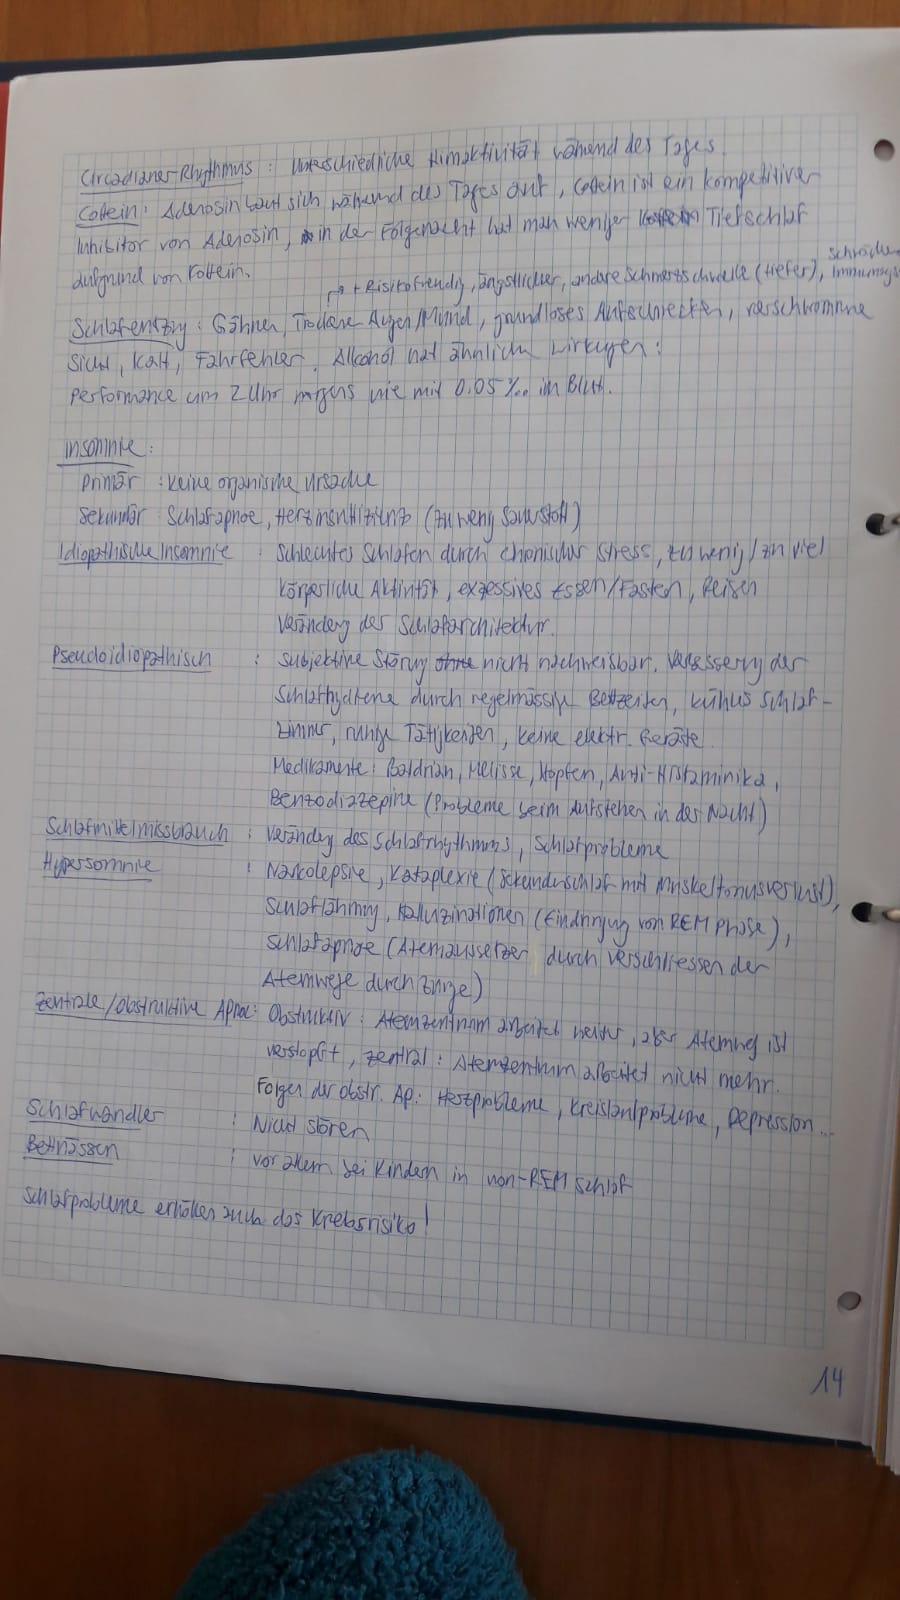 Circadianer-Rhythmus : Unterschiedliche Hirnaktivität während des Tages.
Coffein: Adenosin baut sich während des Tages auf, Coffein ist ein kompetitiver
Inhibitor von Adenosin, in der Folgenacht hat man weniger Tiefschlaf
aufgrund von Koffein.
+ Risikofreudig, ängstlicher, andere Schmerzschwelle (tiefer),
Schlafentzug : Gähnen, Trockene Augen/Mund, grundloses Aufschrecken, verschwomme
Sicht, Kalt, Fahrfehler. Alkohol hat ähnliche Wirkungen:
Performance um 2 Uhr morgens wie mit 0.05‰ im Blut.
Insomnie:
Primär : Keine organische Ursache
Sekundär : Schlafapnoe, Herzinsuffizienz (zu wenig Sauerstoff)
Idiopathische Insomnie : Schlechtes Schlafen durch chonischer Stress, zu wenig/zu viel
Körperliche Aktivität, exzessives Essen/Fasten, Reisen
Veränderg der Schlafarchitektur.
Pseudoidiopathisch : Subjektive Störung nicht nachweisbar. Verbesserg der
Schlafhygiene durch regelmässige Bettzeiten, kühles Schlaf-
zimmer, ruhige Tätigkeiten, keine elektr. Geräte.
Medikamente: Baldrian, Melisse, Hopfen, Anti-Histaminika,
Benzodiazepine (Probleme beim Aufstehen in der Nacht)
Schlafmittelmissbrauch : Veränderg des Schlafrhythmus, Schlafprobleme
Hypersomnie : Narkolepsie, Kataplexie (Sekundenschlaf mit Muskeltonusverlust),
Schlaflähmung, Halluzinationen (Eindringug von REM Phase),
Schlafapnoe (Atemaussetzer durch Verschliessen der
Atemwege durch Zunge)
Zentrale/Obstruktive Apnoe: Obstruktiv : Atemzentrum arbeitet weiter, aber Atemweg ist
verstopft, zentral : Atemzentrum arbeitet nicht mehr.
Folgen der obstr. Ap.: Herzprobleme, Kreislaufprobleme, Depression...
Schlafwandler : Nicht stören
Bettnässen : vor allem bei Kindern in non-REM Schlaf
Schlafprobleme erhöhen auch das Krebsrisiko!
14